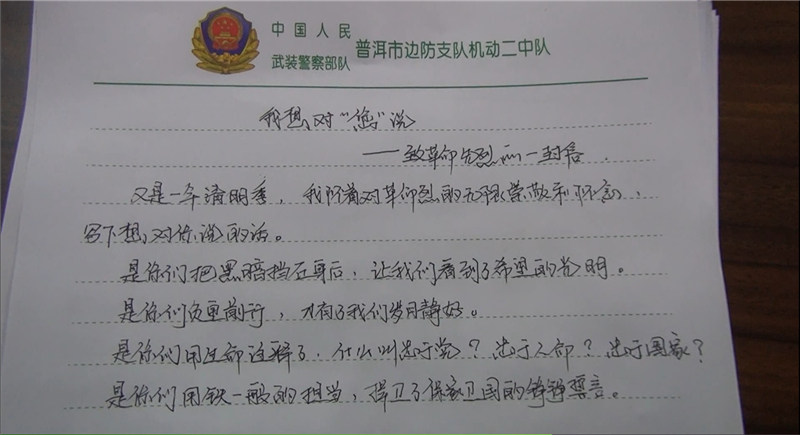 中国人民
武装警察部队 普洱市边防支队机动二中队
我想对“您”说
——致革命先烈的一封信
又是一年清明季，我怀着对革命烈的无限崇敬和怀念、
写下想对你说的话。
是你们把黑暗挡在身后，让我们看到了希望的光明。
是你们负重前行，才有了我们岁月静好。
是你们用生命诠释了，什么叫忠于党？忠于人命？忠于国家？
是你们用铁一般的担当，捍卫了保家卫国的铮铮誓言。